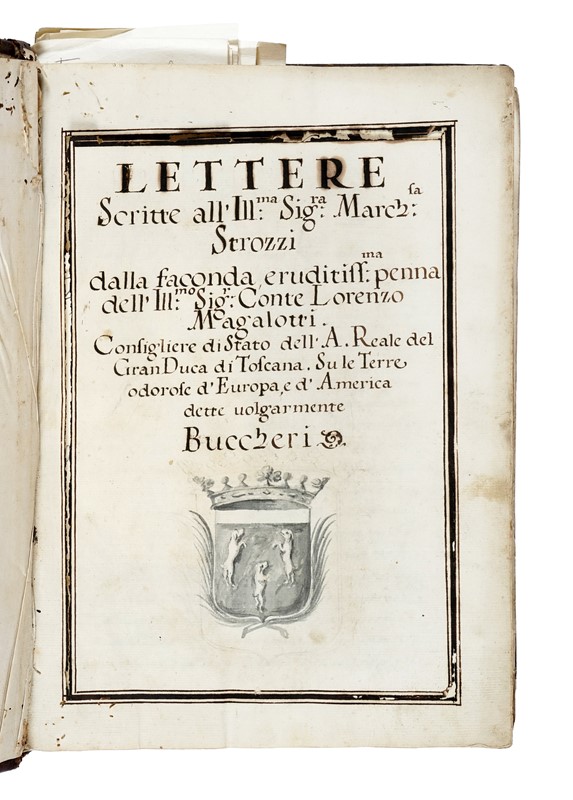 LETTERE
Scritte all'Ill:ma Sig:ra March:sa
Strozzi
dalla faconda, eruditiss:ma penna
dell'Ill:mo Sig:r Conte Lorenzo
Magalotti.
Consigliere di Stato dell'A. Reale del
Gran Duca di Toscana. Su le Terre
odorose d'Europa, e d'America
dette uolgarmente
Buccheri